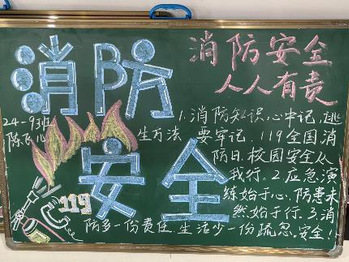 消防安全
消防安全
人人有责
24-93班
陈
1.消防知识,心中记,逃
生万法要牢记,119全国消
防日,校园安全从
我行.2.应急演
练始于心,防患未
然始于行.3.消
防多一份责任 生活少一份疏忽.安全!
119